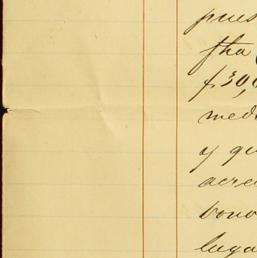 pues
fha
$30,0
med
y qu
acre
bono
luga